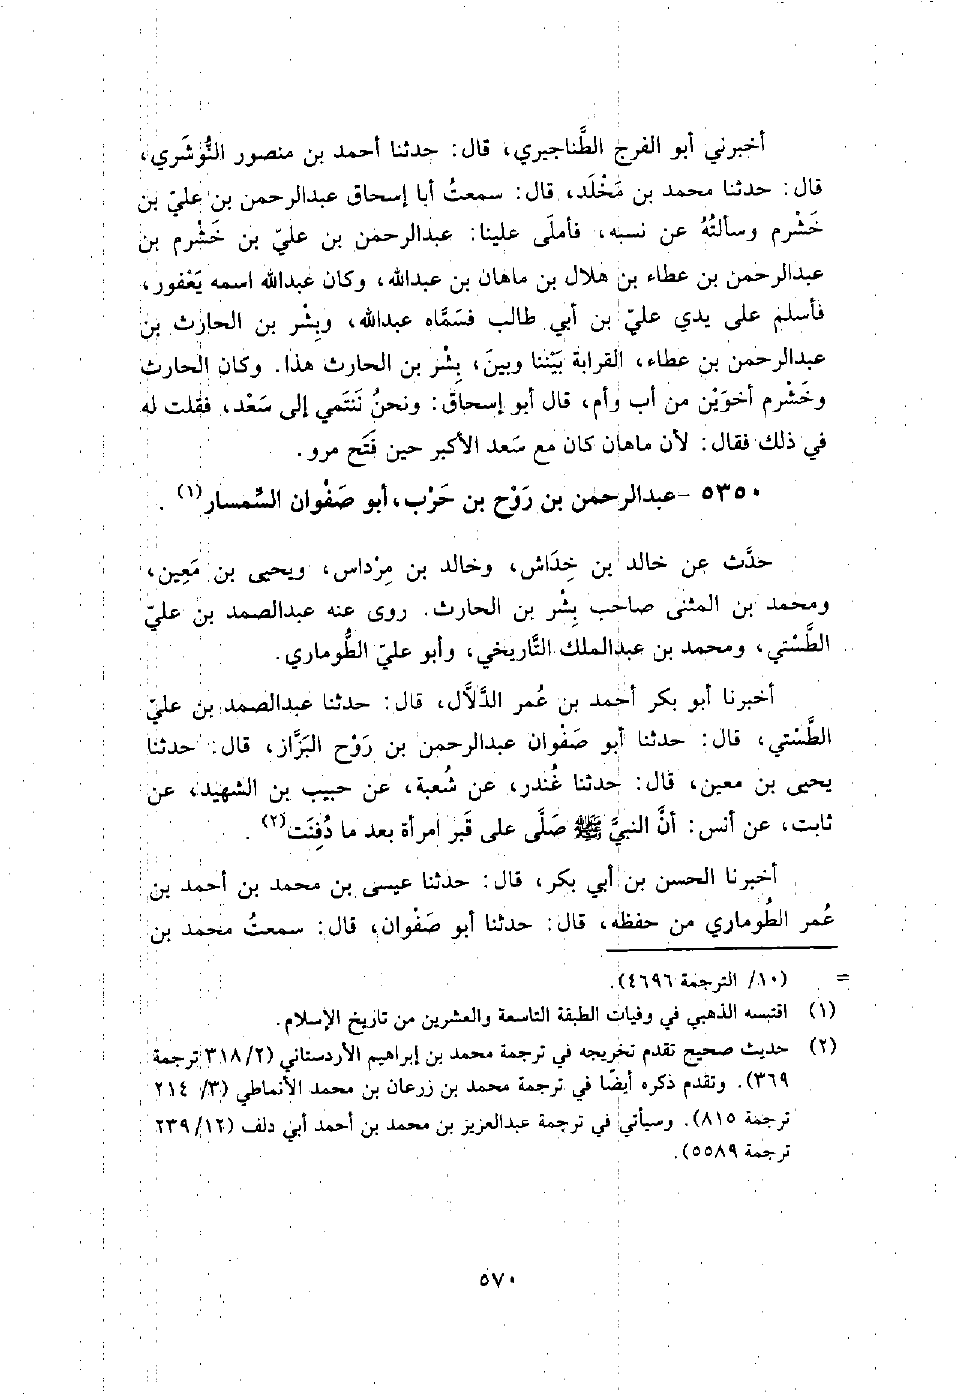 أخبرني أبو الفرج الطَّناجيري، قال: حدثنا أحمد بن منصور النُّوشَري،
قال: حدثنا محمد بن مَخْلَد، قال: سمعتُ أبا إسحاق عبدالرحمن بن عليّ بن
خَشْرم وسألتُهُ عن نسبه، فأملَى علينا: عبدالرحمن بن عليّ بن خَشْرم بن
عبدالرحمن بن عطاء بن هلال بن ماهان بن عبدالله، وكان عبدالله اسمه يَعْفور،
فأسلم على يدي عليّ بن أبي طالب فسَمَّاه عبدالله، وبِشْر بن الحارث بن
عبدالرحمن بن عطاء، القرابة بَيْننا وبينَ، بِشْر بن الحارث هذا. وكان الحارث
وخَشْرم أخوَيْن من أب وأم، قال أبو إسحاق: ونحنُ نَنْتَمي إلى سَعْد، فقلت له
في ذلك فقال: لأن ماهان كان مع سَعد الأكبر حين فَتَح مرو.
٥٣٥٠ - عبدالرحمن بن رَوْح بن حَرْب، أبو صَفْوان السِّمسار(١).
حدَّث عن خالد بن خِدَاش، وخالد بن مِرْداس، ويحيى بن مَعِين،
ومحمد بن المثنى صاحب بِشْر بن الحارث. روى عنه عبدالصمد بن عليّ
الطَّسْتي، ومحمد بن عبدالملك التَّاريخي، وأبو عليّ الطُّوماري.
أخبرنا أبو بكر أحمد بن عُمر الدَّلَّال، قال: حدثنا عبدالصمد بن عليّ
الطَّسْتي، قال: حدثنا أبو صَفْوان عبدالرحمن بن رَوْح البَزَّاز، قال: حدثنا
يحيى بن معين، قال: حدثنا غُندر، عن شُعبة، عن حبيب بن الشهيد، عن
ثابت، عن أنس: أنَّ النبيَّ ﷺ صَلَّى على قَبر امرأة بعد ما دُفِنَت(٢).
أخبرنا الحسن بن أبي بكر، قال: حدثنا عيسى بن محمد بن أحمد بن
عُمر الطُوماري من حفظه، قال: حدثنا أبو صَفْوان، قال: سمعتُ محمد بن
= (١٠/ الترجمة ٤٦٩٦).
(١) اقتبسه الذهبي في وفيات الطبقة التاسعة والعشرين من تاريخ الإسلام.
(٢) حديث صحيح تقدم تخريجه في ترجمة محمد بن إبراهيم الأردستاني (٢/ ٣١٨ ترجمة
٣٦٩). وتقدم ذكره أيضًا في ترجمة محمد بن زرعان بن محمد الأنماطي (٣/ ٢١٤
ترجمة ٨١٥). وسيأتي في ترجمة عبدالعزيز بن محمد بن أحمد أبي دلف (١٢/ ٢٣٩
ترجمة ٥٥٨٩).
٥٧٠